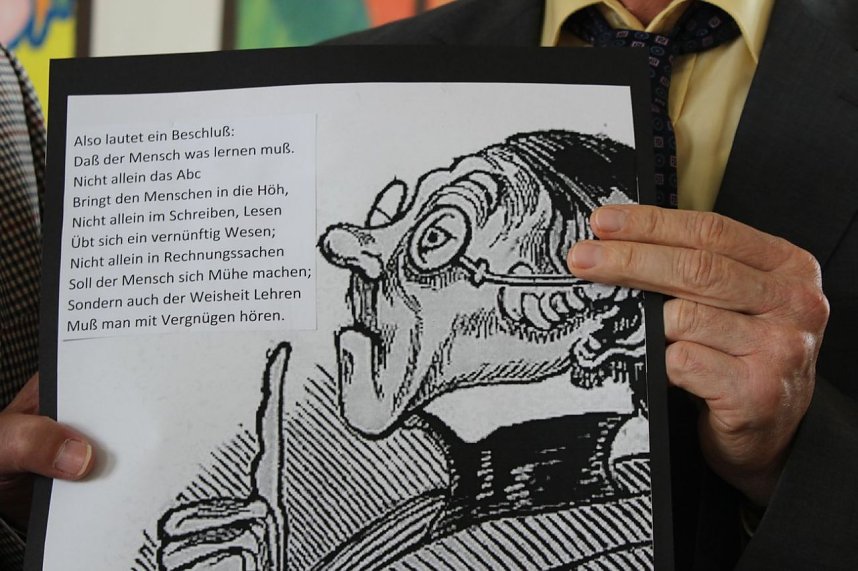 Also lautet ein Beschluß:
Daß der Mensch was lernen muß.
Nicht allein das Abc
Bringt den Menschen in die Höh,
Nicht allein im Schreiben, Lesen
Übt sich ein vernünftig Wesen;
Nicht allein in Rechnungssachen
Soll der Mensch sich Mühe machen;
Sondern auch der Weisheit Lehren
Muß man mit Vergnügen hören.